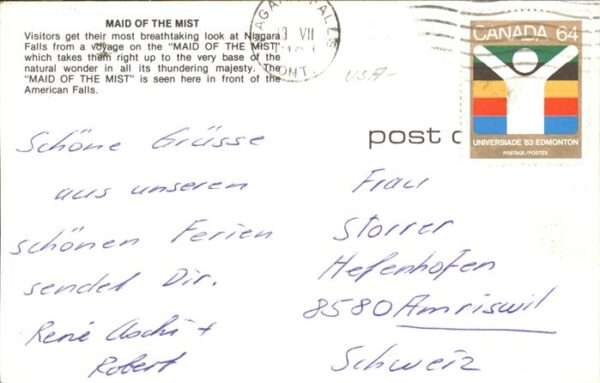 MAID OF THE MIST
Visitors get their most breathtaking look at Niagara
Falls from a voyage on the "MAID OF THE MIST"
which takes them right up to the very base of the
natural wonder in all its thundering majesty. The
"MAID OF THE MIST" is seen here in front of the
American Falls.
FALLS
VII
ONT.
USA-
CANADA 64
UNIVERSIADE '83 EDMONTON
POSTAGE/POSTES
post
Schöne Grüsse
aus unseren
schönen Ferien
sendet Dir.
René +
Robert
Frau
Storrer
Hefenhofen
8580 Amriswil
Schweiz